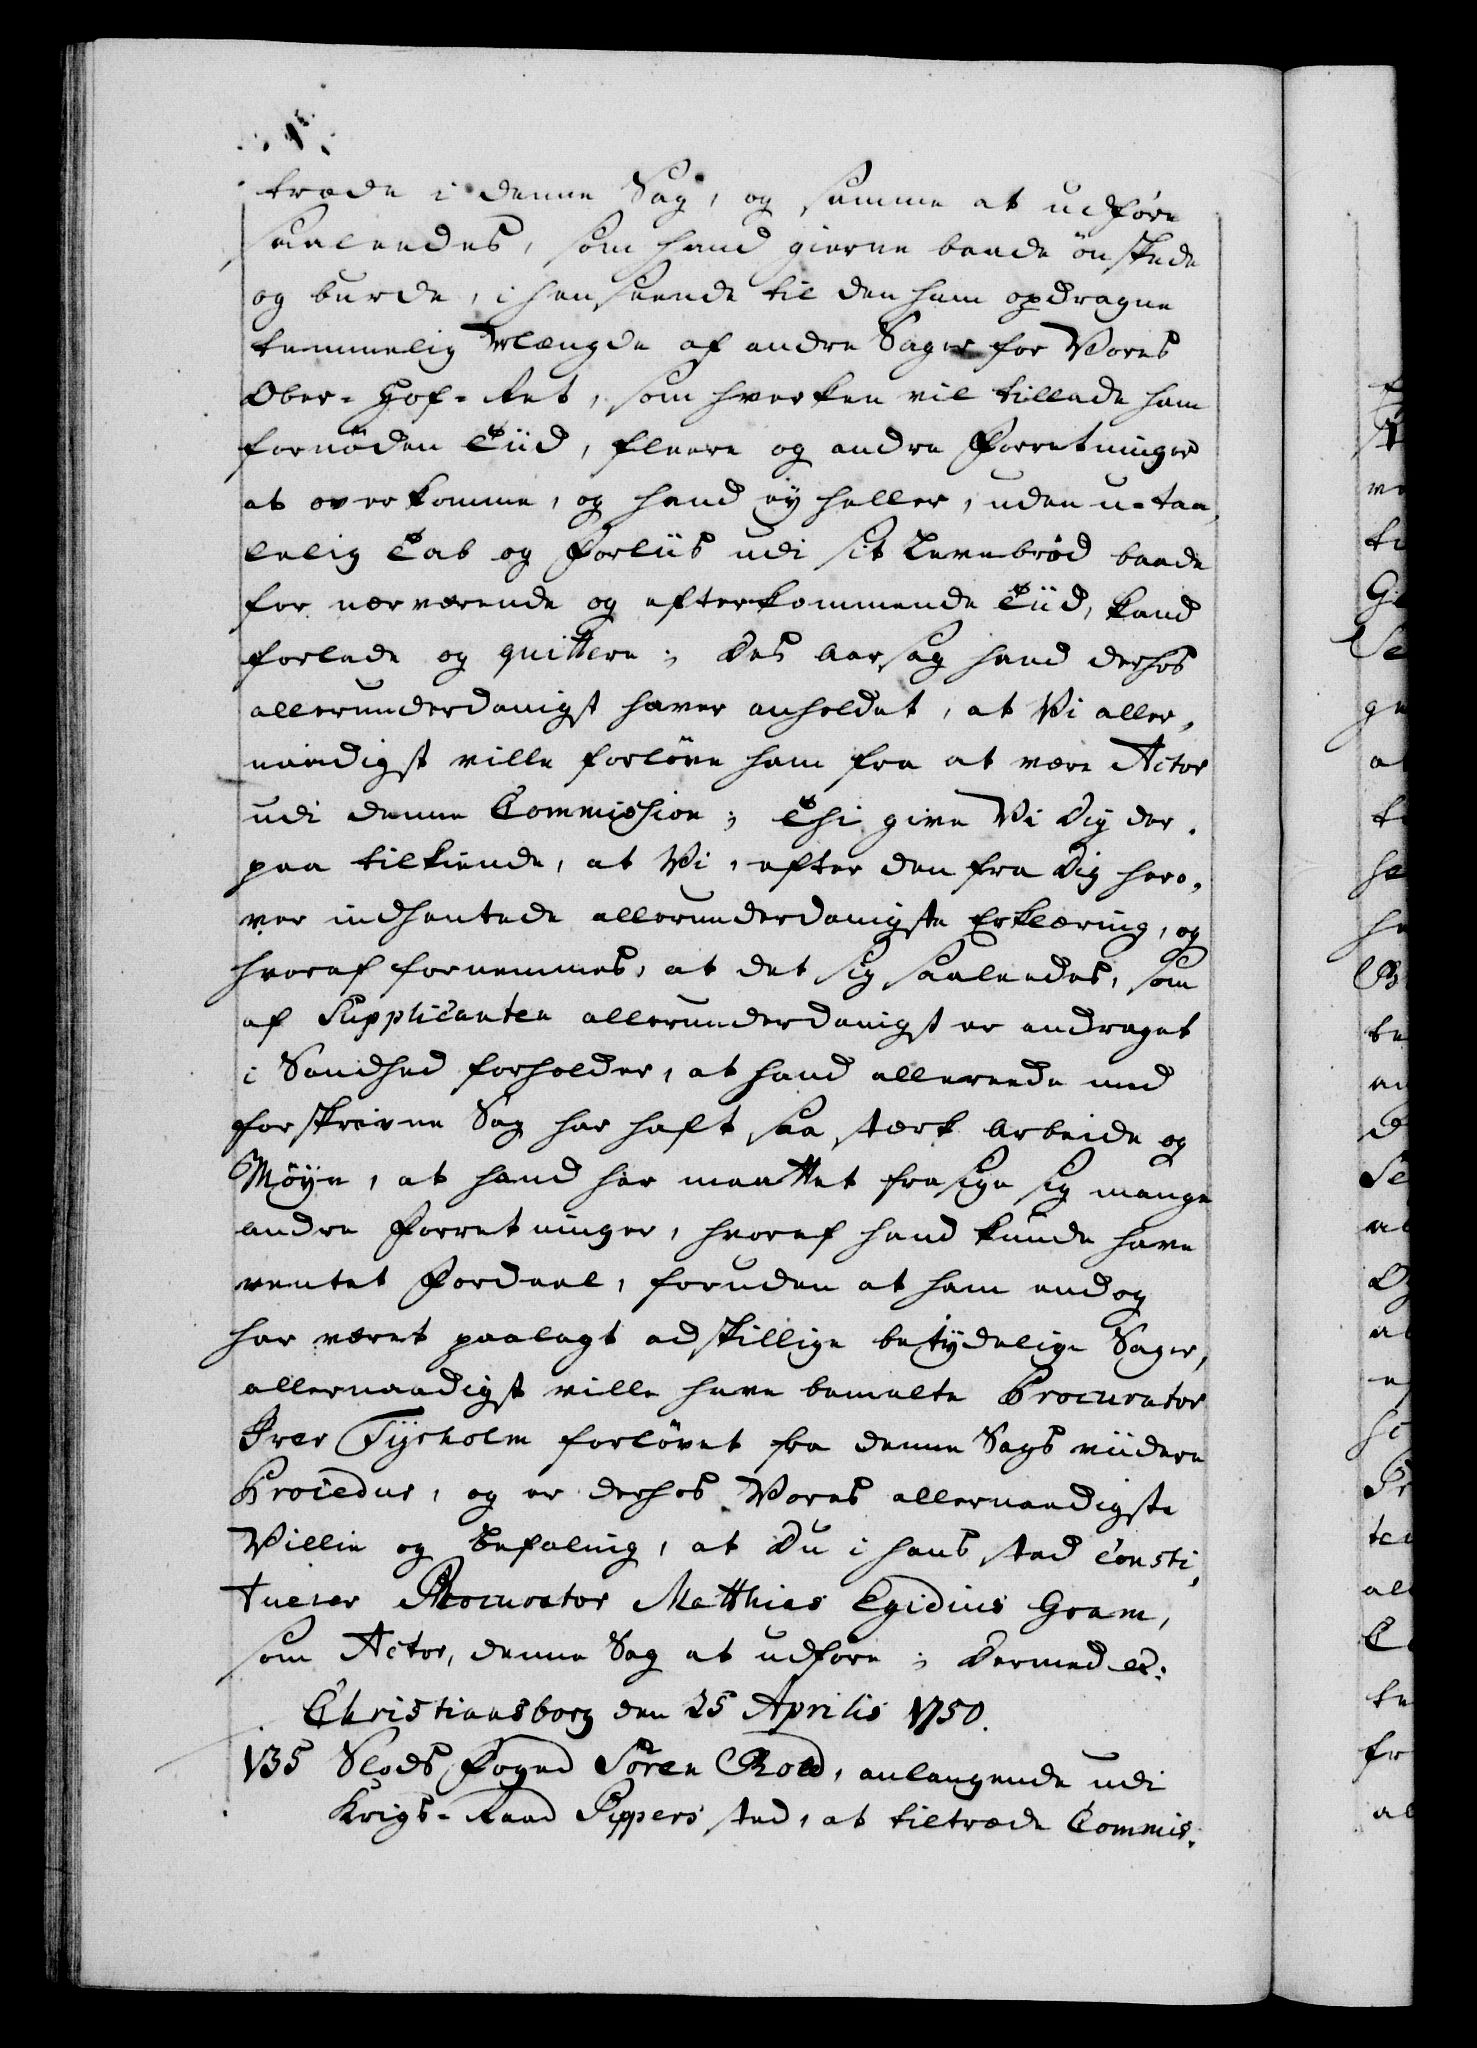 træde i denne Sag, og samme at udføre
saaleedes, som hand gierne baade önskede
og burde, i henseende til den ham opdragne
temmelig Mængde af andre Sager for Vores
Ober-Hof-Ret, som hverken vil tillade ham
fornöden Tiid, fleere og andre Forretninger
at overkomme, og hand ey heller, uden u-taa-
lelig Tab og Forliis udi sit Levebrød baade
for nærværende og efterkommende Tiid, kand
forlade og quittere; Des Aarsag hand derhos
allerunderdanigst haver anholdet, at Vi aller-
naadigst ville forlöve ham fra at være Actor
udi denne Commission; Thi give Vi Dig der-
paa tilkiende, at Vi, efter den fra Dig hero-
ver indhentede allerunderdanigste Erklæring, og
hvoraf fornemmes, at det sig saaleedes, som
af Supplicanten allerunderdanigst er andraget
i Sandhed forholder, at hand allereede med
forskrevne Sag har haft saa stærk Arbeide og
Möye, at hand har maattet frasige sig mange
andre Forretninger, hvoraf hand kunde have
ventet Fordeel, foruden at ham endog
har været paalagt adskillige betydelige Sager,
allernaadigst ville have bemelte Procurator
Iver Tyrholm forlövet fra denne Sags viidere
Procedur, og er derhos Vores allernaadigste
Villie og Befaling, at Du i hans sted consti-
tuerer Procurator Matthias Egidius Gram,
som Actor, denne Sag at udföre; Dermed er:
Christiansborg den 25 Aprilis 1750.
135 Slods Foged Sören Rold, anlangende udi
Krigs-Raad Pippers sted, at tiltræde Commis-